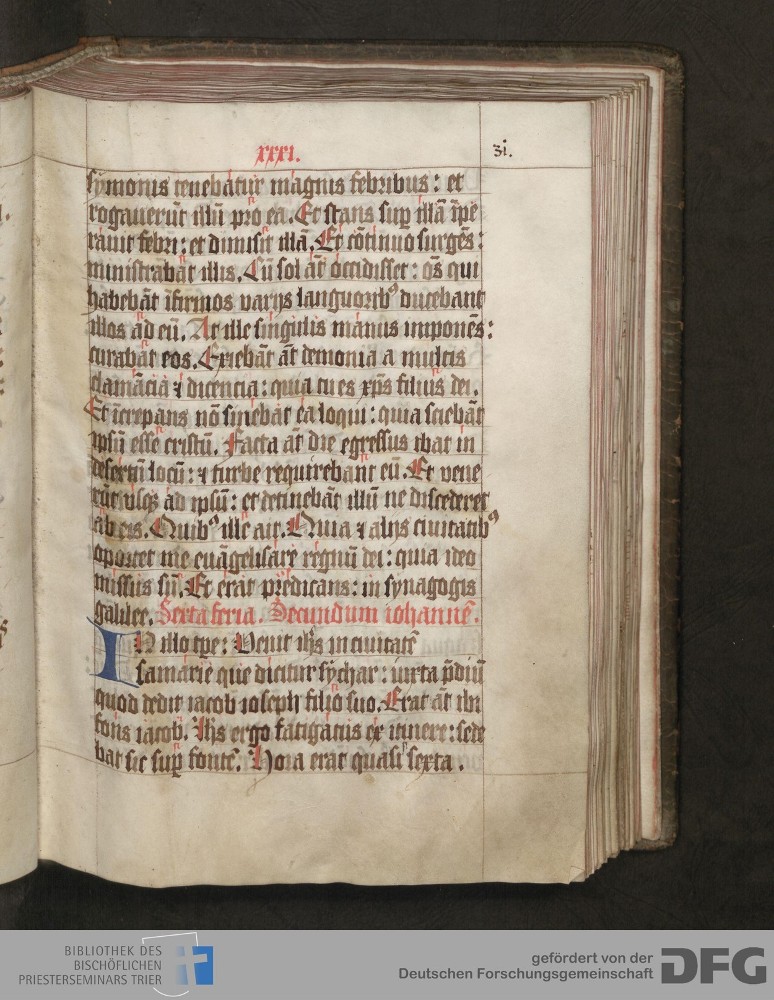 xxxi.
31.
symonis tenebatur magnis febribus: et
rogauerūt illū pro ea. Et stans sup̄ illā īpe
rauit febri: et dimisit illā. Et cōtinuo surgēs:
ministrabat illis. Cū sol āt occidisset: oēs qui
habebāt īfirmos varijs languorib⁹ ducebant
illos ad eū. At ille singulis manus imponēs:
curabat eos. Exiebāt āt demonia a multis
clamācia ⁊ dicencia: quia tu es xp̄s filius dei.
Et īcrepans nō sinebat ea loqui: quia sciebāt
ipsū esse cristū. Facta āt die egressus ibat in
desertū locū: ⁊ turbe requirebant eū. Et vene
rūt vsq; ad ipsū: et detinebāt illū ne discederet
ab eis. Quib⁹ ille ait. Quia ⁊ alijs ciuitatib⁹
oportet me euāgelisare regnū dei: quia ideo
missus sū. Et erat predicans: in synagogis
galilee. Sexta feria. Secundum iohannē.
IN illo tpe: Venit ihs in ciuitatē
samarie que dicitur sychar: iuxta p̄diū
quod dedit iacob ioseph filio suo. Erat āt ibi
fons iacob. Ihs ergo fatigatus ex itinere: sede
bat sic sup̄ fontē. Hora erat quasi sexta.
BIBLIOTHEK DES
BISCHÖFLICHEN
PRIESTERSEMINARS TRIER
gefördert von der
Deutschen Forschungsgemeinschaft
DFG